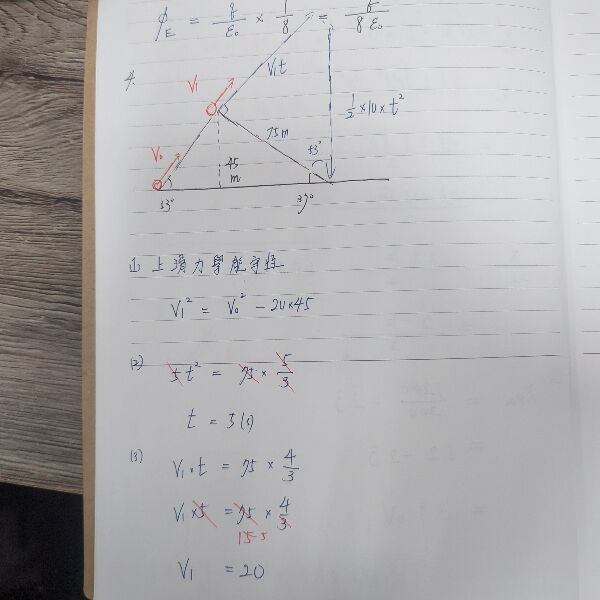 ϕ_E = q/ε₀ × 1/8 = q/8ε₀
4.
V₁
V₁t
½×10×t²
V₀
75m
45 m
53°
53°
37°
(1) 上滑力學能守恆
V₁² = V₀² - 20×45
(2) 5t² = 75 × 5/3
t = 5(s)
(3) V₁·t = 75 × 4/3
V₁×5 = 75 × 4/3
15 5
V₁ = 20